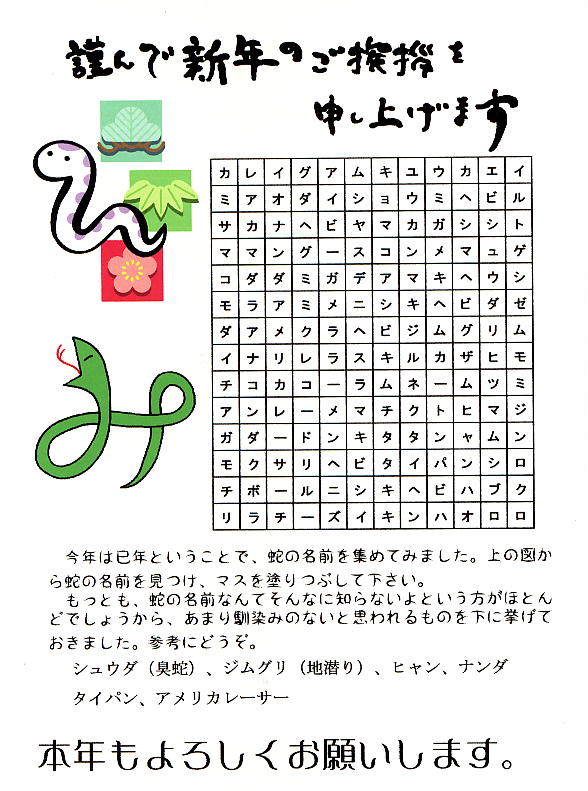 謹んで新年のご挨拶を
申し上げます
カレイグアムキユウカエイ
ミアオダイショウミヘビル
サカナヘビヤマカガシシト
ママングースコンメマュゲ
コダダミガデアマキヘウシ
モラアミメニシキヘビダゼ
ダアメクラヘビジムグリム
イナリレラスキルカザヒモ
チコカコーラムネームツミ
アンレーメマチクトヒマジ
ガダードンキタタンャムン
モクサリヘビタイパンシロ
チボールニシキヘビハブク
リラチーズイキンハオロロ
今年は巳年ということで、蛇の名前を集めてみました。上の図か
ら蛇の名前を見つけ、マスを塗りつぶして下さい。
もっとも、蛇の名前なんてそんなに知らないよという方がほとん
どでしょうから、あまり馴染みのないと思われるものを下に挙げて
おきました。参考にどうぞ。
シュウダ（臭蛇）、ジムグリ（地潜り）、ヒャン、ナンダ
タイパン、アメリカレーサー
本年もよろしくお願いします。